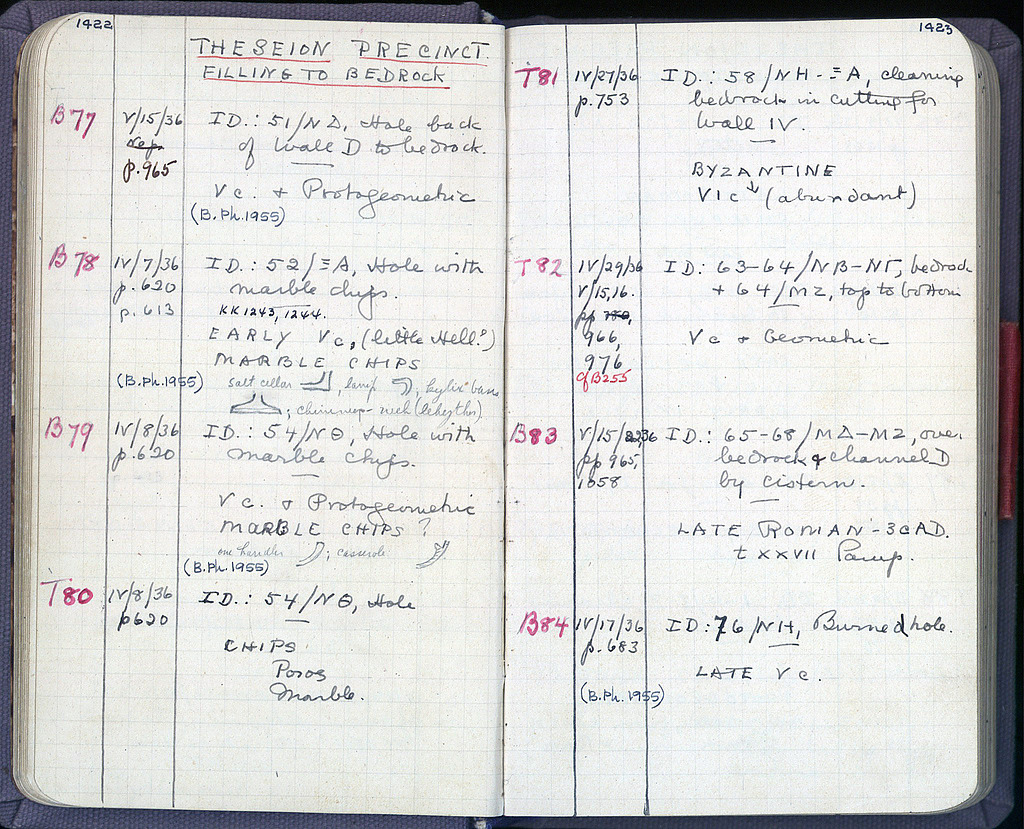 1422
THESEION PRECINCT.
FILLING TO BEDROCK
B77 V/15/36 ID.: 51/NΔ, Hole back
p.965 of Wall D to bedrock.
Vc. + Protogeometric
(B.Ph.1955)
B78 IV/7/36 ID.: 52/ΞA, Hole with
p.620 marble chips.
p.613 KK1243, 1244.
EARLY Vc, (little Hell?)
MARBLE CHIPS
(B.Ph.1955) salt cellar, lamp, kylix base
; chimney-neck (lekythos).
B79 IV/8/36 ID.: 54/NΘ, Hole with
p.620 marble chips.
Vc. + Protogeometric
MARBLE CHIPS?
one handler ; casserole
(B.Ph.1955)
T80 IV/8/36 ID.: 54/NΘ, Hole
p620
CHIPS
Poros
Marble.
1423
T81 IV/27/36 ID.: 58/NH-ΞA, cleaning
p.753 bedrock in cutting for
Wall IV.
BYZANTINE
VIc ↓ (abundant)
T82 IV/29/36 ID: 63-64/NB-NΓ, bedrock
V/15,16. + 64/MZ, top to bottom
pp 780,
966, Vc + Geometric
976
cf B255
B83 V/15/22,36 ID: 65-68/MΔ-MZ, over
pp 965, bedrock & channel D
1058 by cistern.
LATE ROMAN - 3C AD.
t XXVII Pamp.
B84 IV/17/36 ID: 76/NH, Burned hole.
p.683
LATE Vc.
(B.Ph.1955)